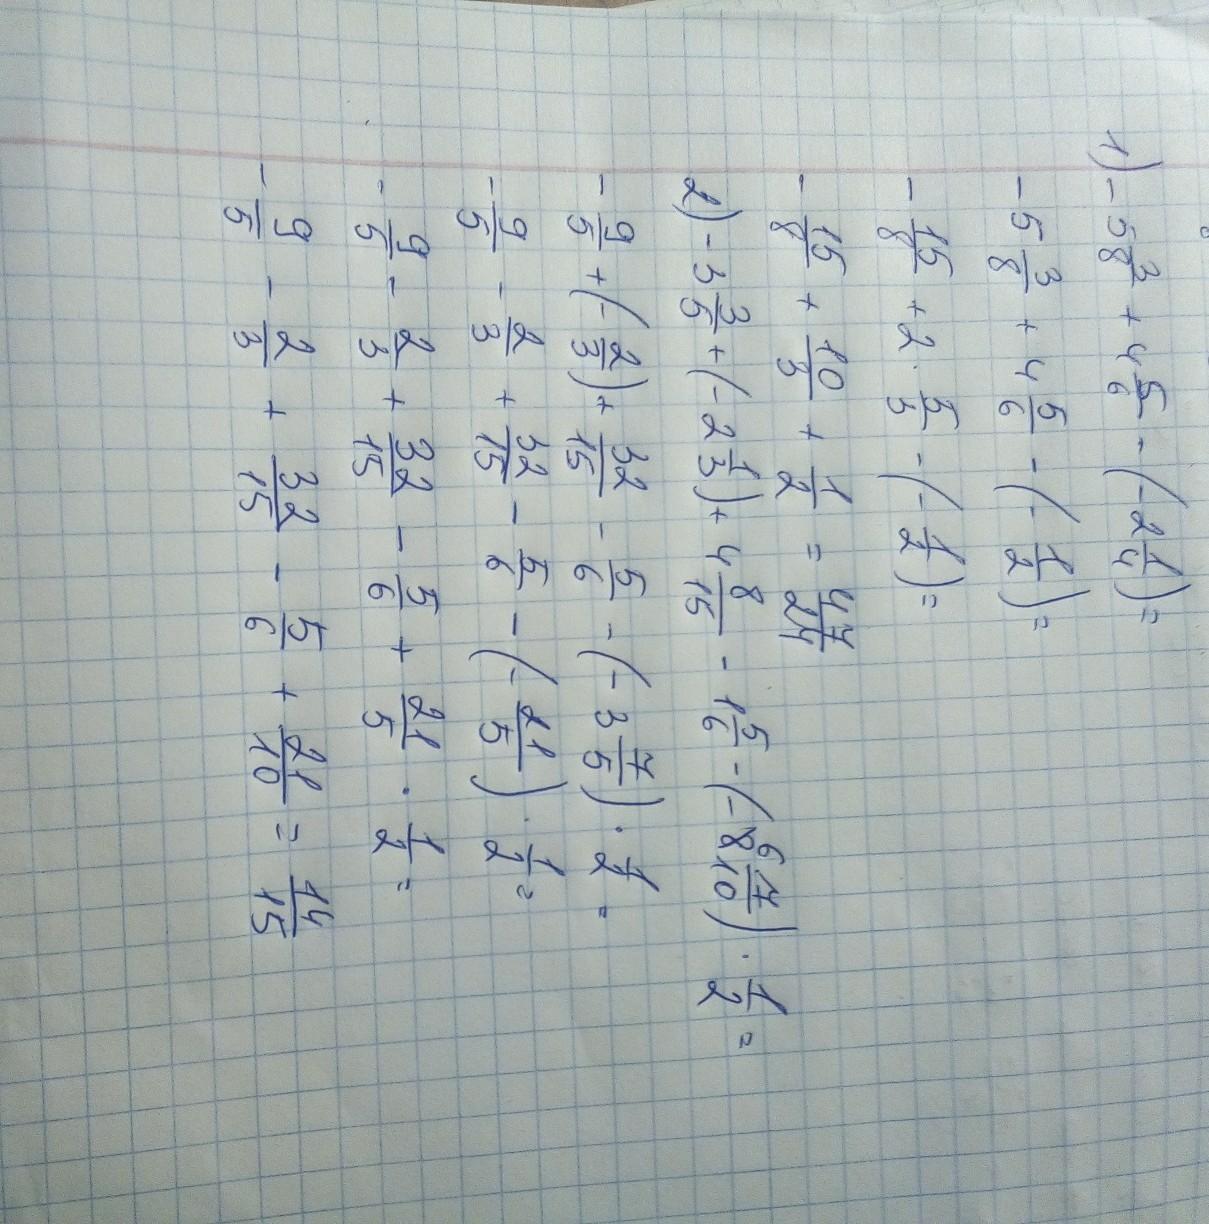 1) - 5 3/8 + 4 5/6 - (- 2 1/4) =
- 5 3/8 + 4 5/6 - (- 1/2) =
- 15/8 + 2 · 5/3 - (- 1/2) =
- 15/8 + 10/3 + 1/2 = 47/24
2) - 3 3/5 + (- 2 1/3) + 4 8/15 - 1 5/6 - (- 8 6 7/10) · 1/2 =
- 9/5 + (- 2/3) + 32/15 - 5/6 - (- 3 7/5) · 1/2 =
- 9/5 - 2/3 + 32/15 - 5/6 - (- 21/5) · 1/2 =
- 9/5 - 2/3 + 32/15 - 5/6 + 21/5 · 1/2 =
- 9/5 - 2/3 + 32/15 - 5/6 + 21/10 = 14/15